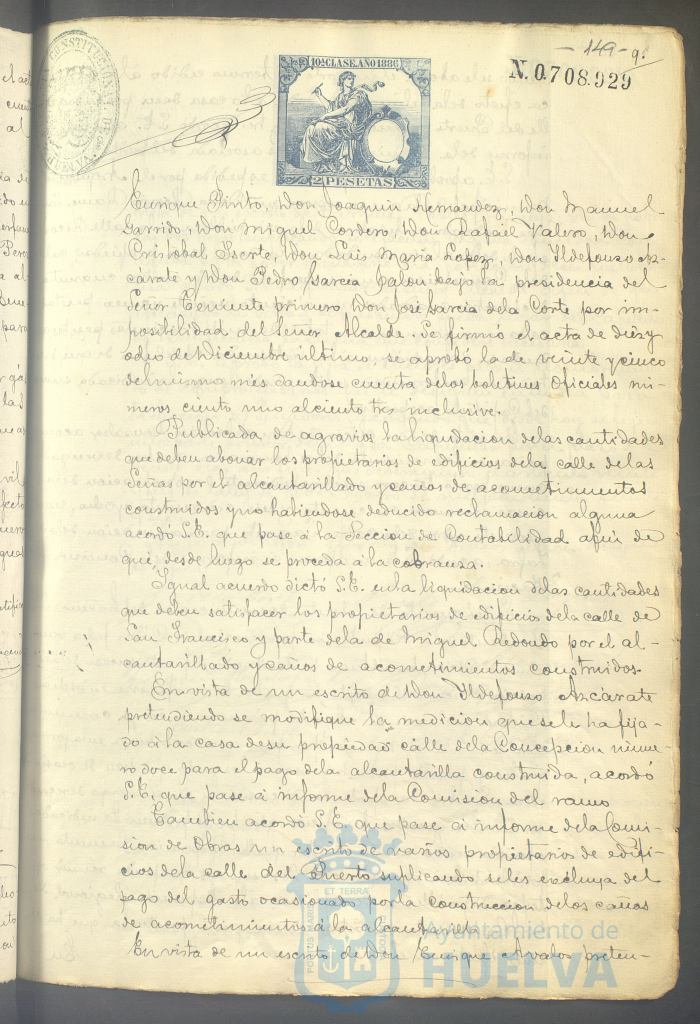 - 149 - 9.
10ª CLASE. AÑO 1886
N. 0.708.929
2 PESETAS
CONSTITUCIONAL DE
Enrique Pinto, Don Joaquin Hernandez, Don Manuel
Garrido, Don Miguel Cordero, Don Rafael Valero, Don
Cristobal Iserte, Don Luis Maria Lopez, Don Yldefonso Az-
cárate y Don Pedro Garcia Jalon bajo la presidencia del
Señor Teniente primero Don José Garcia dela Corte por im-
posibilidad del Señor Alcalde. Se firmó el acta de diez y
ocho de Diciembre último, se aprobó la de veinte y cinco
del mismo mes dandose cuenta delos boletines oficiales nú-
meros ciento uno al ciento tres inclusive.
Publicada de agravios la liquidacion delas cantidades
que deben abonar los propietarios de edificios dela calle delas
Señas por el alcantarillado y caños de acometimientos
construidos y no habiendose deducido reclamacion alguna
acordó S.E. que pase á la Seccion de Contabilidad afin de
que desde luego se proceda á la cobranza.
Igual acuerdo dictó S.E. en la liquidacion delas cantidades
que deben satisfacer los propietarios de edificios dela calle de
San Francisco y parte dela de Miguel Redondo por el al-
cantarillado y caños de acometimientos construidos.
En vista de un escrito de Don Yldefonzo Azcárate
pretendiendo se modifique la medicion que se le ha fija-
do á la casa desu propiedad calle dela Concepcion núme-
ro doce para el pago dela alcantarilla construida, acordó
S.E. que pase á informe dela Comision del ramo
Tambien acordó S.E. que pase á informe dela Comi-
sion de Obras un escrito de varios propietarios de edifi-
cios dela calle del Puerto suplicando seles excluya del
pago del gasto ocasionado por la construccion delos caños
de acometimientos á la alcantarilla
En vista de un escrito de Don Enrique Avalos preten-
PORTUS MARIS ET TERRAE CUSTODIA
Ayuntamiento de
HUELVA